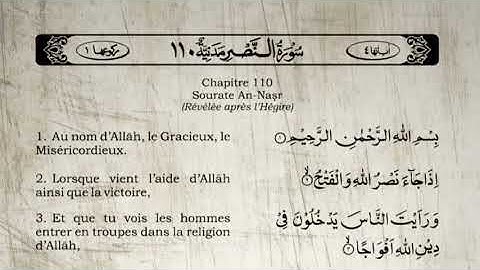 رکوعها ١ سُوْرَةُ النَّصْرِ مَدَنِيَّةٌ ١١٠ اٰیاتها ٤
Chapitre 110
Sourate An-Naṣr
(Révélée après l'Hégire)
1. Au nom d'Allāh, le Gracieux, le
Miséricordieux.
بِسْمِ اللّٰهِ الرَّحْمٰنِ الرَّحِيْمِ ۝١
2. Lorsque vient l'aide d'Allāh
ainsi que la victoire,
اِذَا جَآءَ نَصْرُ اللّٰهِ وَالْفَتْحُ ۝٢
3. Et que tu vois les hommes
entrer en troupes dans la religion
d'Allāh,
وَرَاَيْتَ النَّاسَ يَدْخُلُوْنَ فِيْ
دِيْنِ اللّٰهِ اَفْوَاجًا ۝٣